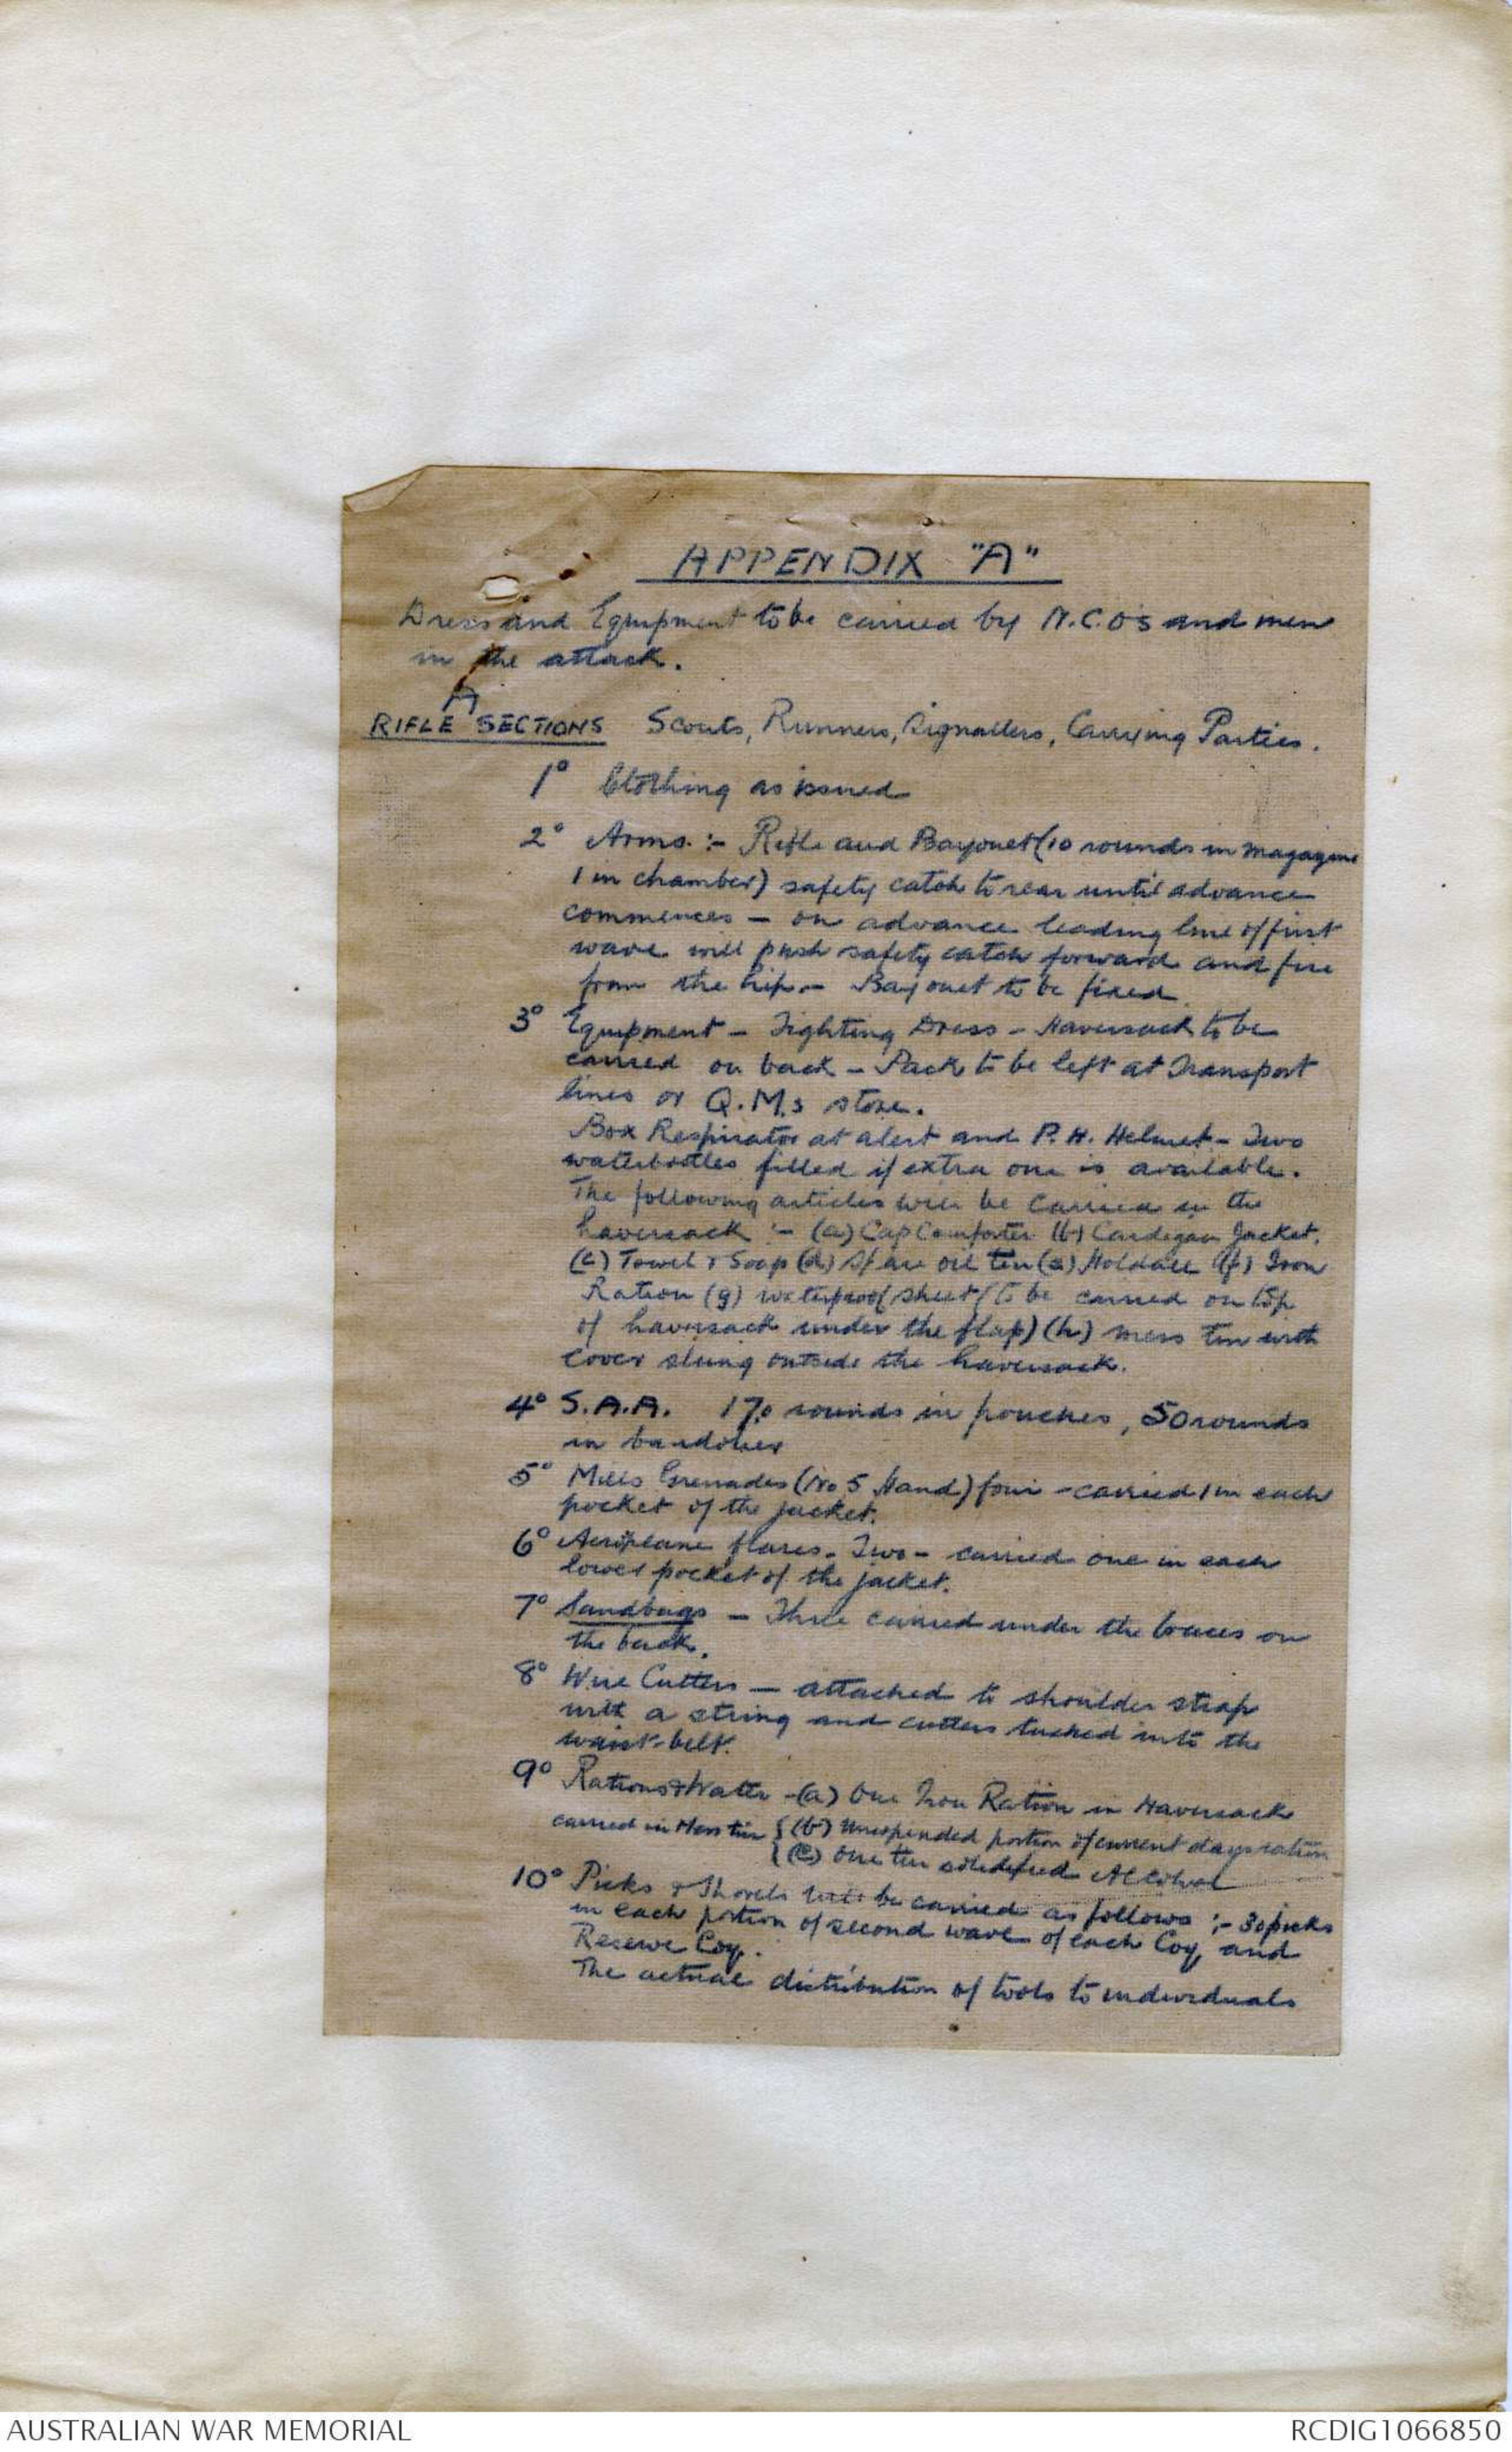 APPENDIX "A"
Dress and Equipment to be carried by N.C.O's and men
in the attack.
A
RIFLE SECTIONS Scouts, Runners, Signallers, Carrying Parties.
1° Clothing as issued
2° Arms :- Rifle and Bayonet (10 rounds in magazine
1 in chamber) safety catch to rear until advance
commences - on advance leading line of first
wave will push safety catch forward and fire
from the hip - Bayonet to be fixed.
3° Equipment - Fighting Dress - Haversack to be
carried on back - Pack to be left at Transport
lines or Q.M.s store.
Box Respirator at alert and P.H. Helmet - Two
waterbottles filled if extra one is available.
The following articles will be carried in the
haversack :- (a) Cap Comforter (b) Cardigan Jacket.
(c) Towel & Soap (d) Spare oil tin (e) Holdall (f) Iron
Ration (g) waterproof sheet (to be carried on top
of haversack under the flap) (h) mess tin with
cover slung outside the haversack.
4° S.A.A. 170 rounds in pouches, 50 rounds
in bandolier
5° Mills Grenades (No 5 Hand) four - carried 1 in each
pocket of the jacket.
6° Aeroplane flares - Two - carried one in each
lower pocket of the jacket.
7° Sandbags - Three carried under the braces on
the back.
8° Wire Cutters - attached to shoulder strap
with a string and cutters tucked into the
waist-belt.
9° Rations & Water - (a) One Iron Ration in Haversack
carried in Mess tin { (b) Unexpended portion of current days ration
(c) One tin solidified Alcohol
10° Picks & Shovels will be carried as follows :- 30 picks
in each portion of second wave of each Coy, and
Reserve Coy.
The actual distribution of tools to individuals
AUSTRALIAN WAR MEMORIAL
RCDIG1066850